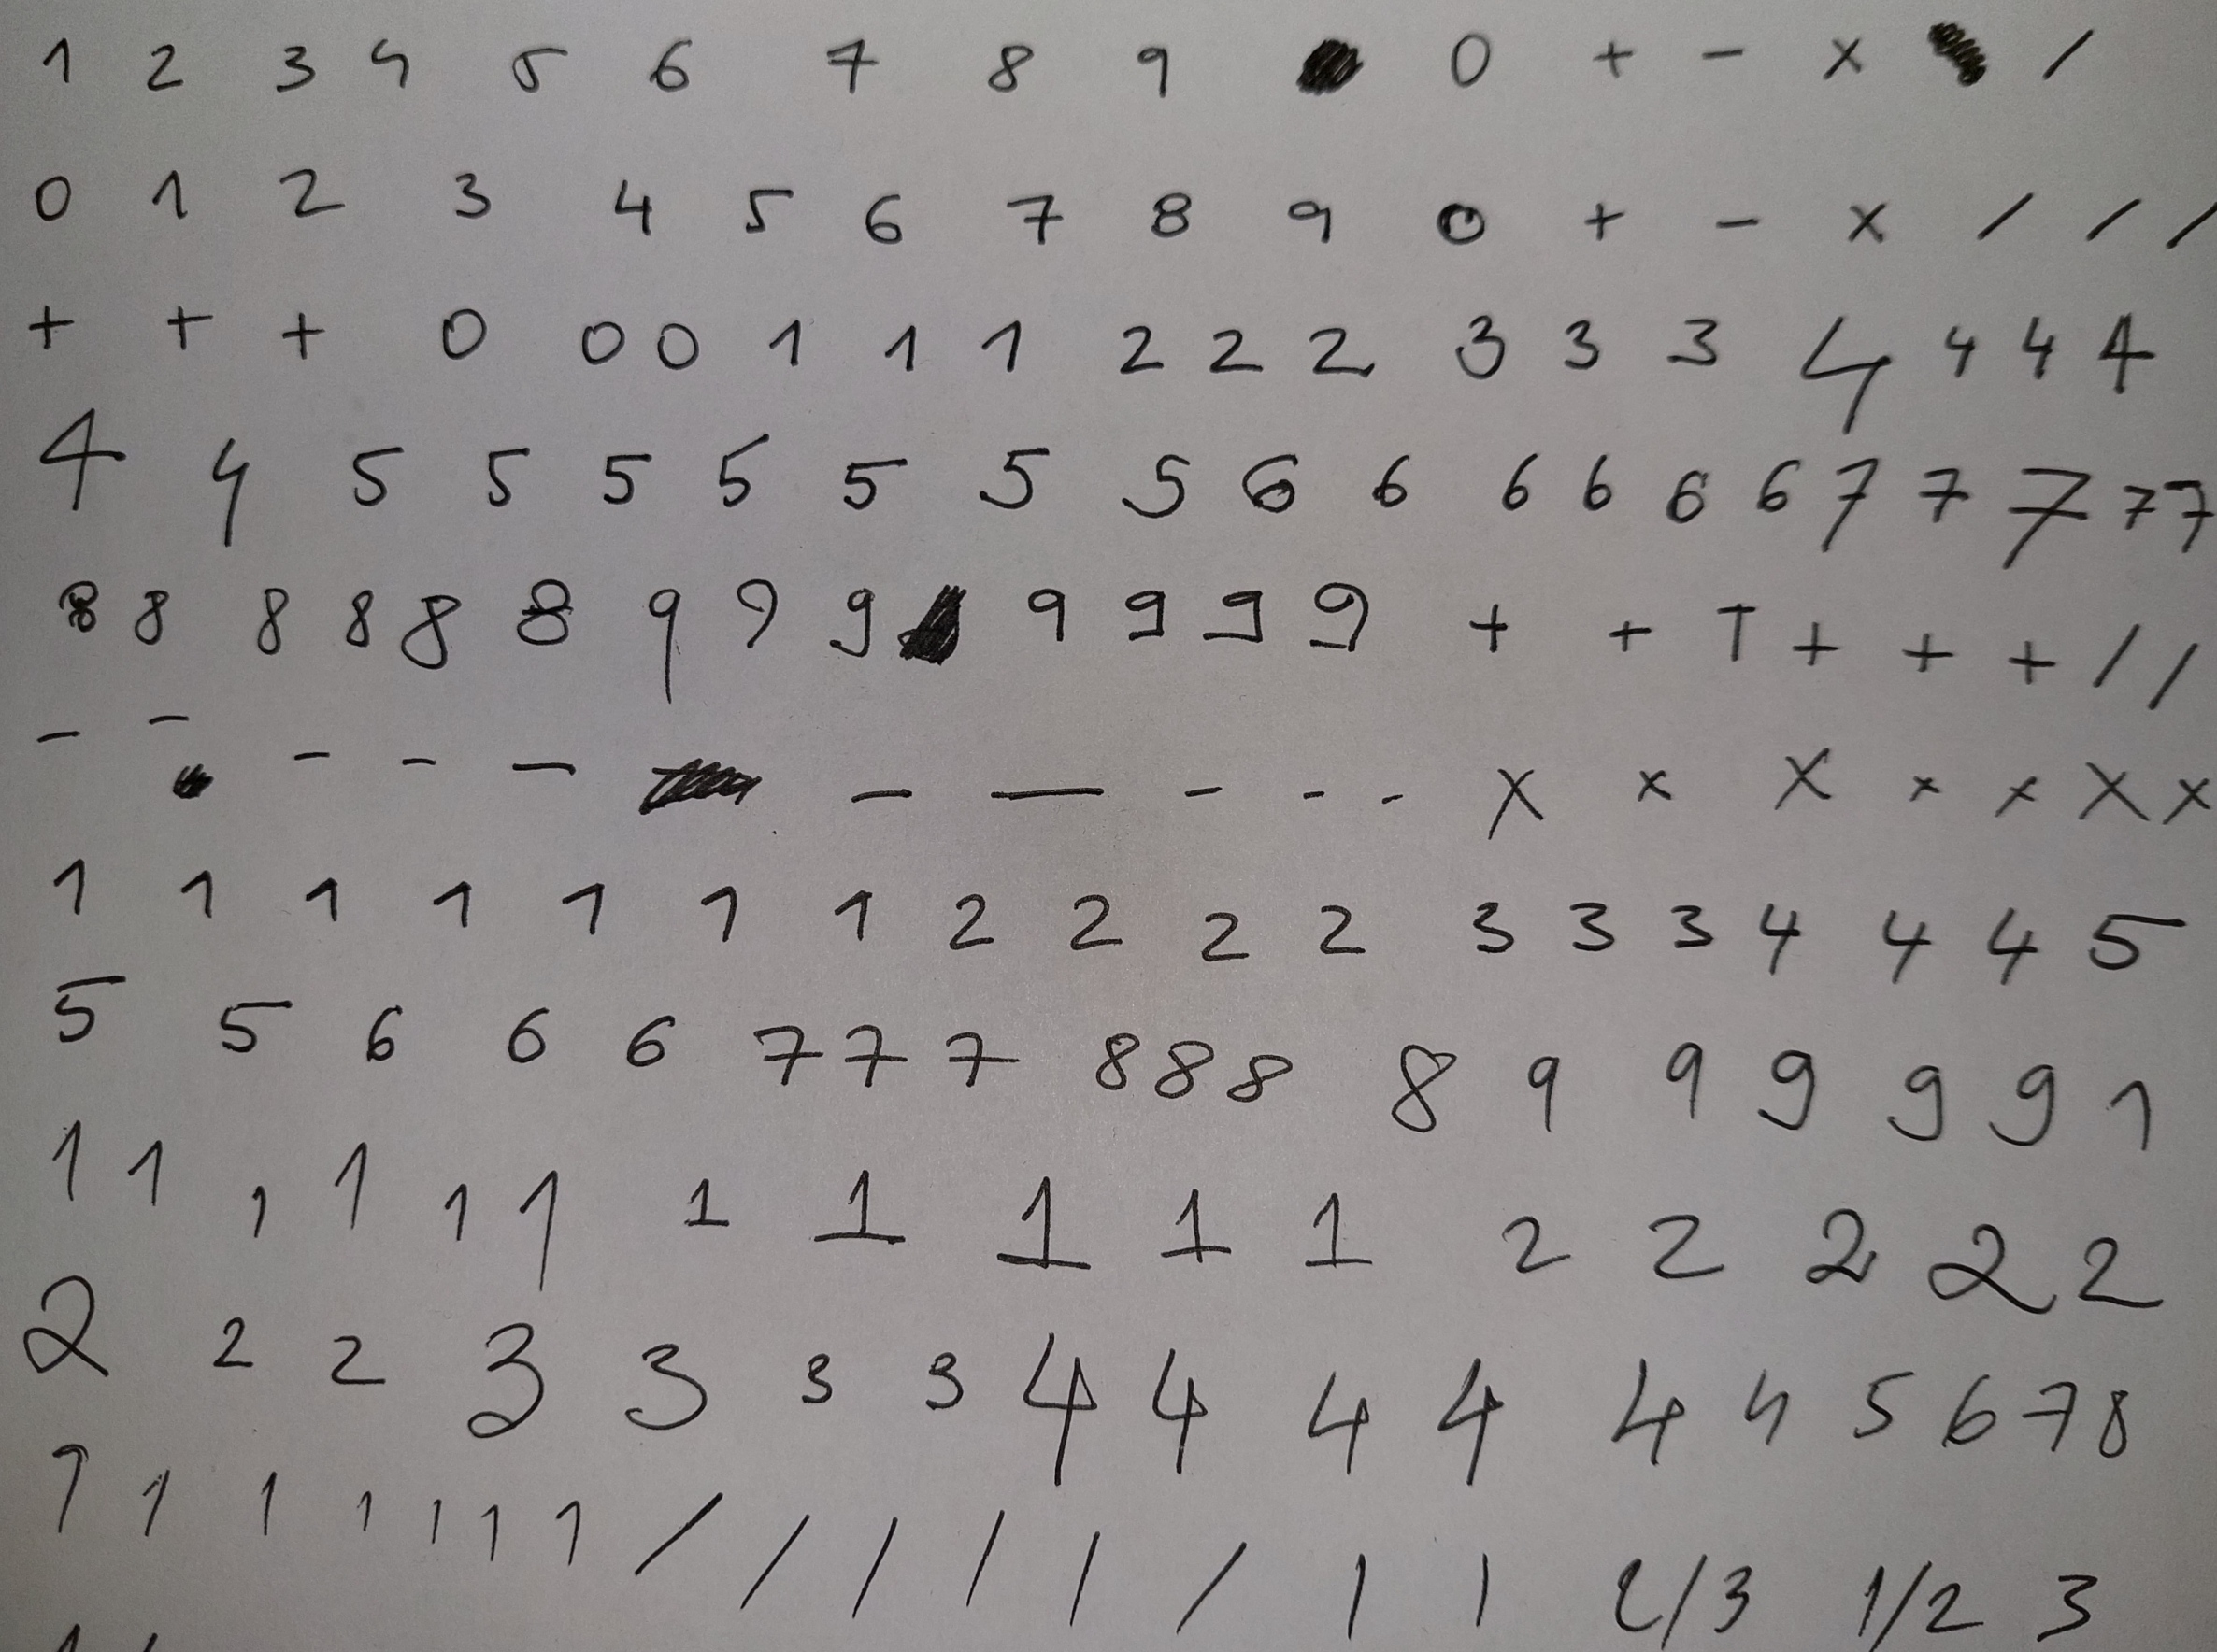 1 2 3 4 5 6 7 8 9 0 + - x /
0 1 2 3 4 5 6 7 8 9 0 + - x / / /
+ + + 0 0 0 1 1 1 2 2 2 3 3 3 4 4 4 4
4 4 5 5 5 5 5 5 5 6 6 6 6 6 6 7 7 7 7 7
8 8 8 8 8 8 9 9 9 9 9 9 9 + + T + + + / /
- - - - - - - - - - x x x x x x x
1 1 1 1 1 1 1 2 2 2 2 3 3 3 4 4 4 5
5 5 6 6 6 7 7 7 8 8 8 8 9 9 9 9 9 1
1 1 1 1 1 1 1 1 1 1 1 2 2 2 2 2
2 2 2 3 3 3 3 4 4 4 4 4 4 5 6 7 8
1 1 1 1 1 1 1 / / / / / / / / 2/3 1/2 3